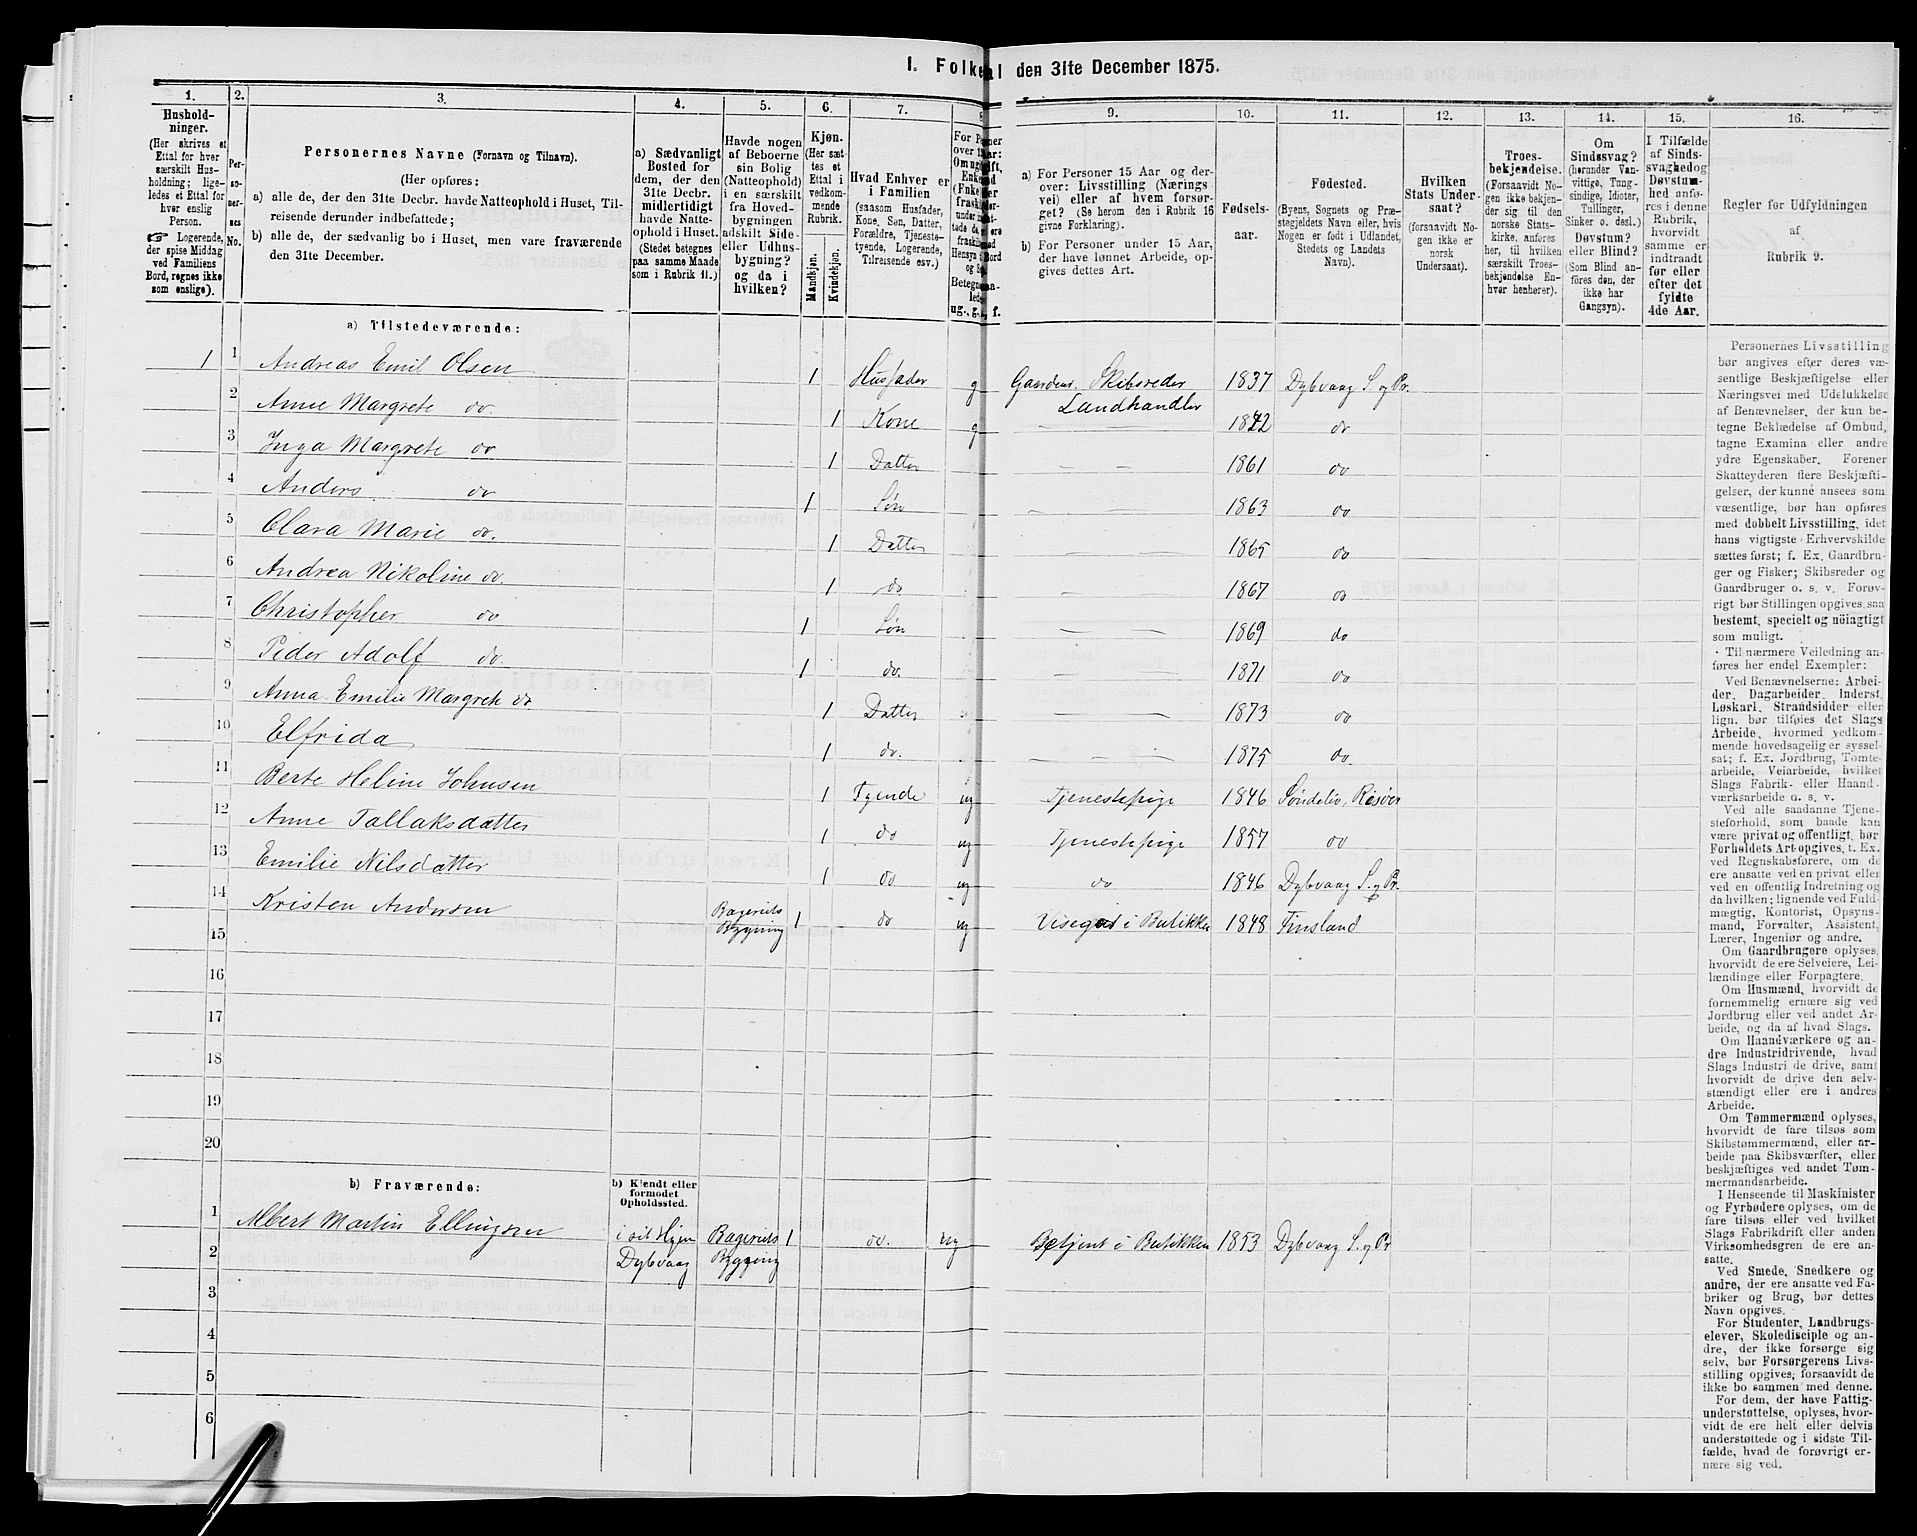 I. Folketal den 31te December 1875.
1. 2. 3. 4. 5. 6. 7. 8. 9. 10. 11. 12. 13. 14. 15. 16.
Hushold-
ninger.
(Her skrives et
Ettal for hver
særskilt Hus-
holdning; lige-
ledes et Ettal for
hver enslig
Person.
☞ Logerende,
der spise Middag
ved Familiens
Bord, regnes ikke
som enslige).
Per-
so-
ner-
nes
No.
Personernes Navne (Fornavn og Tilnavn).
(Her opføres:
a) alle de, der den 31te Decbr. havde Natteophold i Huset, Til-
reisende derunder indbefattede;
b) alle de, der sædvanlig bo i Huset, men vare fraværende
den 31te December.
a) Sædvanligt
Bosted for
dem, der den
31te Decbr.
midlertidigt
havde Natte-
ophold i Huset.
(Stedet betegnes
paa samme Maade
som i Rubrik 11.)
Havde nogen
af Beboerne
sin Bolig
(Natteophold)
i en særskilt
fra Hoved-
bygningen
adskilt Side-
eller Udhus-
bygning?
og da i
hvilken?
Kjøn.
(Her sæt-
tes et
Ettal i
vedkom-
mende
Rubrik.
Mandkjøn.
Kvindekjøn.
Hvad Enhver er
i Familien
(saasom Husfader,
Kone, Søn, Datter,
Forældre, Tjeneste-
tyende, Logerende,
Tilreisende osv.)
a) For Personer 15 Aar og der-
over: Livsstilling (Nærings-
vei) eller af hvem forsør-
get? (Se herom den i Rubrik 16
givne Forklaring).
b) For Personer under 15 Aar,
der have lønnet Arbeide, op-
gives dettes Art.
Fødsels-
aar.
Fødested.
(Byens, Sognets og Præ-
stegjeldets Navn eller, hvis
Nogen er født i Udlandet,
Stedets og Landets
Navn).
Hvilken
Stats Under-
saat?
(forsaavidt No-
gen ikke er
norsk
Undersaat).
Troes-
bekjendelse.
(Forsaavidt No-
gen ikke bekjen-
der sig til den
norske Stats-
kirke, anføres
her, til hvilken
særskilt Troes-
bekjendelse En-
hver henhører).
Om
Sindssvag?
(herunder Van-
vittige, Tung-
sindige, Idioter,
Tullinger,
Sinker o. desl.)
Døvstum?
eller Blind?
(Som Blind an-
føres den, der
ikke har
Gangsyn).
I Tilfælde
af Sinds-
svaghed og
Døvstum-
hed anfø-
res i denne
Rubrik,
hvorvidt
samme er
indtraadt
før eller
efter det
fyldte
4de Aar.
Regler for Udfyldningen
af
Rubrik 9.
a) Tilstedeværende:
1 1 Andreas Emil Olsen 1 Husfader g Gaardeier, Skibsreder Landhandler 1837 Dybvaag S. og Pr.
2 Anne Margrete do. 1 Kone g 1842 do
3 Inga Margrete do 1 Datter 1861 do
4 Anders do 1 Søn 1863 do
5 Clara Marie do. 1 Datter 1865 do
6 Andrea Nikoline do. 1 do 1867 do
7 Christopher do 1 Søn 1869 do
8 Peder Adolf do. 1 do. 1871 do
9 Anna Emilie Margrete do. 1 Datter 1873 do
10 Elfrida 1 do. 1875 do.
11 Berte Heline Johnsen 1 Tyende ug Tjenestepige 1846 Søndelev, Risør
12 Anne Tallaksdatter 1 do ug Tjenestepige 1857 do
13 Emilie Nilsdatter 1 do ug do 1846 Dybvaag S. og Pr.
14 Kristen Andersen Bageriets Bygning 1 do ug i Butikken 1848 Finsland
15
16
17
18
19
20
b) Fraværende:
b) Kjendt eller
formodet
Opholdssted.
1 Albert Martin Ellingsen i sit Hjem Dybvaag Bageriets Bygning 1 do. ug Betjent i Butikken 1853 Dybvaag S. og Pr
2
3
4
5
6
Personernes Livsstilling
bør angives efter deres væ-
sentlige Beskjæftigelse eller
Næringsvei med Udelukkelse
af Benævnelser, der kun be-
tegne Beklædelse af Ombud,
tagne Examina eller andre
ydre Egenskaber. Forener
Skatteyderen flere Beskjæfti-
gelser, der kunne ansees som
væsentlige, bør han opføres
med dobbelt Livsstilling, idet
hans vigtigste Erhvervskilde
sættes først; f. Ex. Gaardbru-
ger og Fisker; Skibsreder og
Gaardbruger o. s. v. Forøv-
rigt bør Stillingen opgives saa
bestemt, specielt og nöiagtigt
som muligt.
Til nærmere Veiledning an-
føres her endel Exempler:
Ved Benævnelserne: Arbei-
der, Dagarbeider, Inderst,
Løskarl, Strandsidder eller
lign. bør tilføies det Slags
Arbeide, hvormed vedkom-
mende hovedsagelig er syssel-
sat; f. Ex. Jordbrug, Tomte-
arbeide, Veiarbeide, hvilket
Slags Fabrik- eller Haand-
værksarbeide o. s. v.
Ved alle saadanne Tjene-
steforhold, som baade kan
være privat og offentligt, bør
Forholdets Art opgives, t. Ex.
ved Regnskabsførere, om de
ere ansatte ved en privat eller
ved en offentlig Indretning og
da hvilken; lignende ved Fuld-
mægtig, Kontorist, Opsyns-
mand, Forvalter, Assistent,
Lærer, Ingeniør og andre.
Om Gaardbrugere oplyses,
hvorvidt de ere Selveiere, Lei-
lændinge eller Forpagtere.
Om Husmænd, hvorvidt de
fornemmelig ernære sig ved
Jordbrug eller ved andet Ar-
beide, og da af hvad Slags.
Om Haandværkere og an-
dre Industridrivende, hvad
Slags Industri de drive, samt
hvorvidt de drive den selv-
stændigt eller ere i andres
Arbeide.
Om Tømmermænd oplyses,
hvorvidt de fare tilsøs som
Skibstømmermænd, eller ar-
beide paa Skibsværfter, eller
beskjæftiges ved andet Tøm-
mermandsarbeide.
I Henseende til Maskinister
og Fyrbødere oplyses, om de
fare tilsøs eller ved hvilket
Slags Fabrikdrift eller anden
Virksomhedsgren de ere an-
satte.
Ved Smede, Snedkere og
andre, der ere ansatte ved Fa-
briker og Brug, bør dettes
Navn opgives.
For Studenter, Landbrugs-
elever, Skoledisciple og an-
dre, der ikke forsørge sig
selv, bør Forsørgerens Livs-
stilling opgives, forsaavidt de
ikke bo sammen med denne.
For dem, der have Fattig-
understøttelse, oplyses, hvor-
vidt de ere helt eller delvis
understøttede og i sidste Til-
fælde, hvad de forøvrigt er-
nære sig ved.